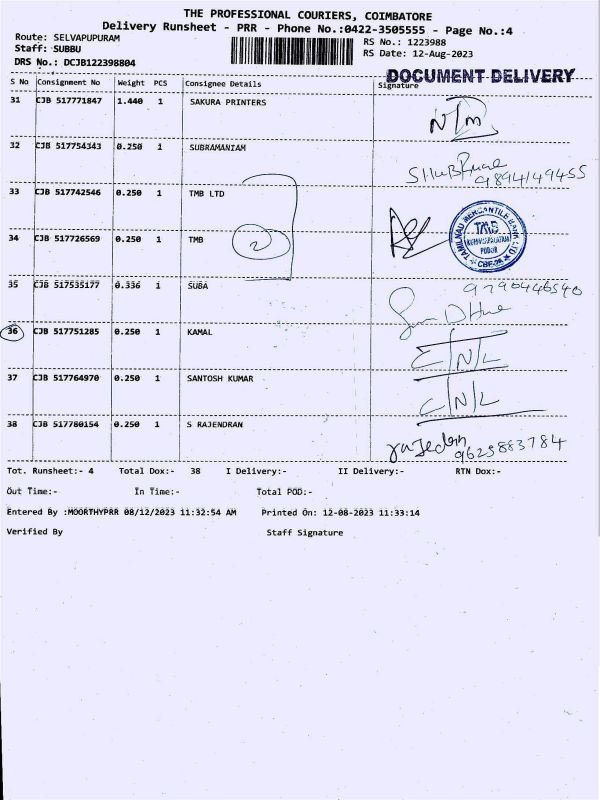 THE PROFESSIONAL COURIERS, COIMBATORE
Delivery Runsheet - PRR - Phone No.:0422-3505555 - Page No.:4
Route: SELVAPUPURAM
RS No.: 1223988
Staff: SUBBU
RS Date: 12-Aug-2023
DRS No.: DCJB122398804
DOCUMENT DELIVERY
S No Consignment No Weight PCS Consignee Details Signature
31 CJB 517771847 1.440 1 SAKURA PRINTERS
32 CJB 517754343 0.250 1 SUBRAMANIAM
9894149455
33 CJB 517742546 0.250 1 TMB LTD
TAMILNAD MERCANTILE BANK LTD
TMB
34 CJB 517726569 0.250 1 TMB 2
35 CJB 517535177 0.336 1 SUBA
9790446540
36 CJB 517751285 0.250 1 KAMAL
C/N/L
37 CJB 517764970 0.250 1 SANTOSH KUMAR
C/N/L
38 CJB 517780154 0.250 1 S RAJENDRAN
9629883784
Tot. Runsheet:- 4 Total Dox:- 38 I Delivery:- II Delivery:- RTN Dox:-
Out Time:- In Time:- Total POD:-
Entered By :MOORTHYPRR 08/12/2023 11:32:54 AM Printed On: 12-08-2023 11:33:14
Verified By Staff Signature